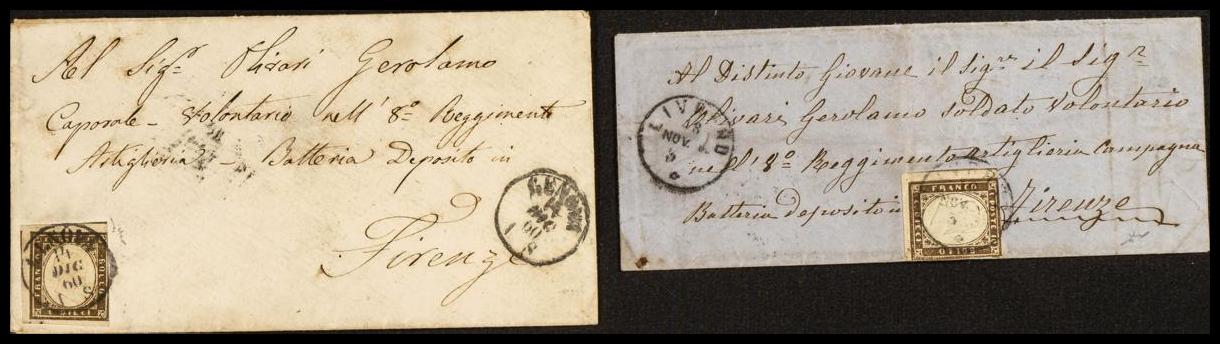 Al Sig.r Olivari Gerolamo
Caporale - Volontario nell' 8.o Reggimento
Artiglieria - Batteria Deposito in
Firenze
GENOVA
14
DIC
60
14
DIC
60
FRANCO
BOLLO
C. DIECI
Al Distinto Giovane il Sig.re il Sig.r
Olivari Gerolamo soldato Volontario
nell' 8o Reggimento artiglieria Campagna
Batteria deposito Firenze
LIVORNO
18
NOV.
NOV.
FRANCO
BOLLO